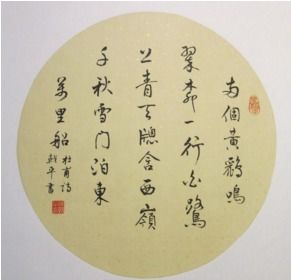 兩個黃鸝鳴
翠柳一行白鷺
上青天牕含西嶺
千秋雪门泊東
萬里船
杜甫詩
平書